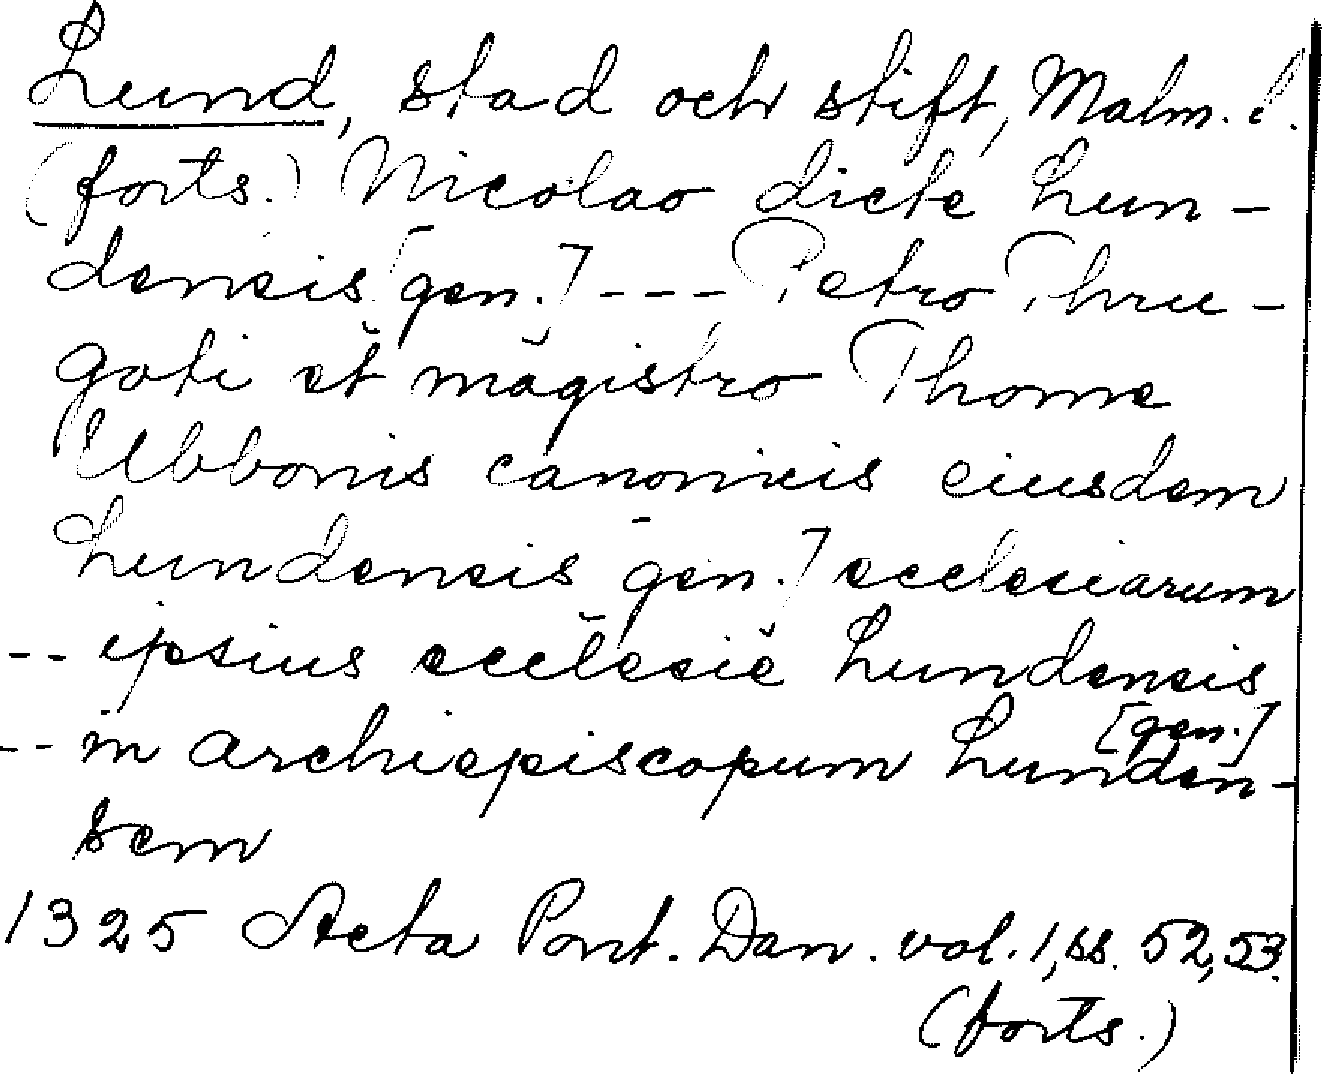 Lund, stad och stift, Malm. l.
(forts.) Nicolao dicte Lun-
densis [gen.] --- Petro Thru-
goti et magistro Thome
Ubbonis canonicis eiusdem
Lundensis gen.] ecclesiarum
-- ipsius ecclesie Lundensis
[gen.]
-- in archiepiscopum Lunden-
sem
1325 Acta Pont. Dan. vol. 1, ss. 52, 53.
(forts.)